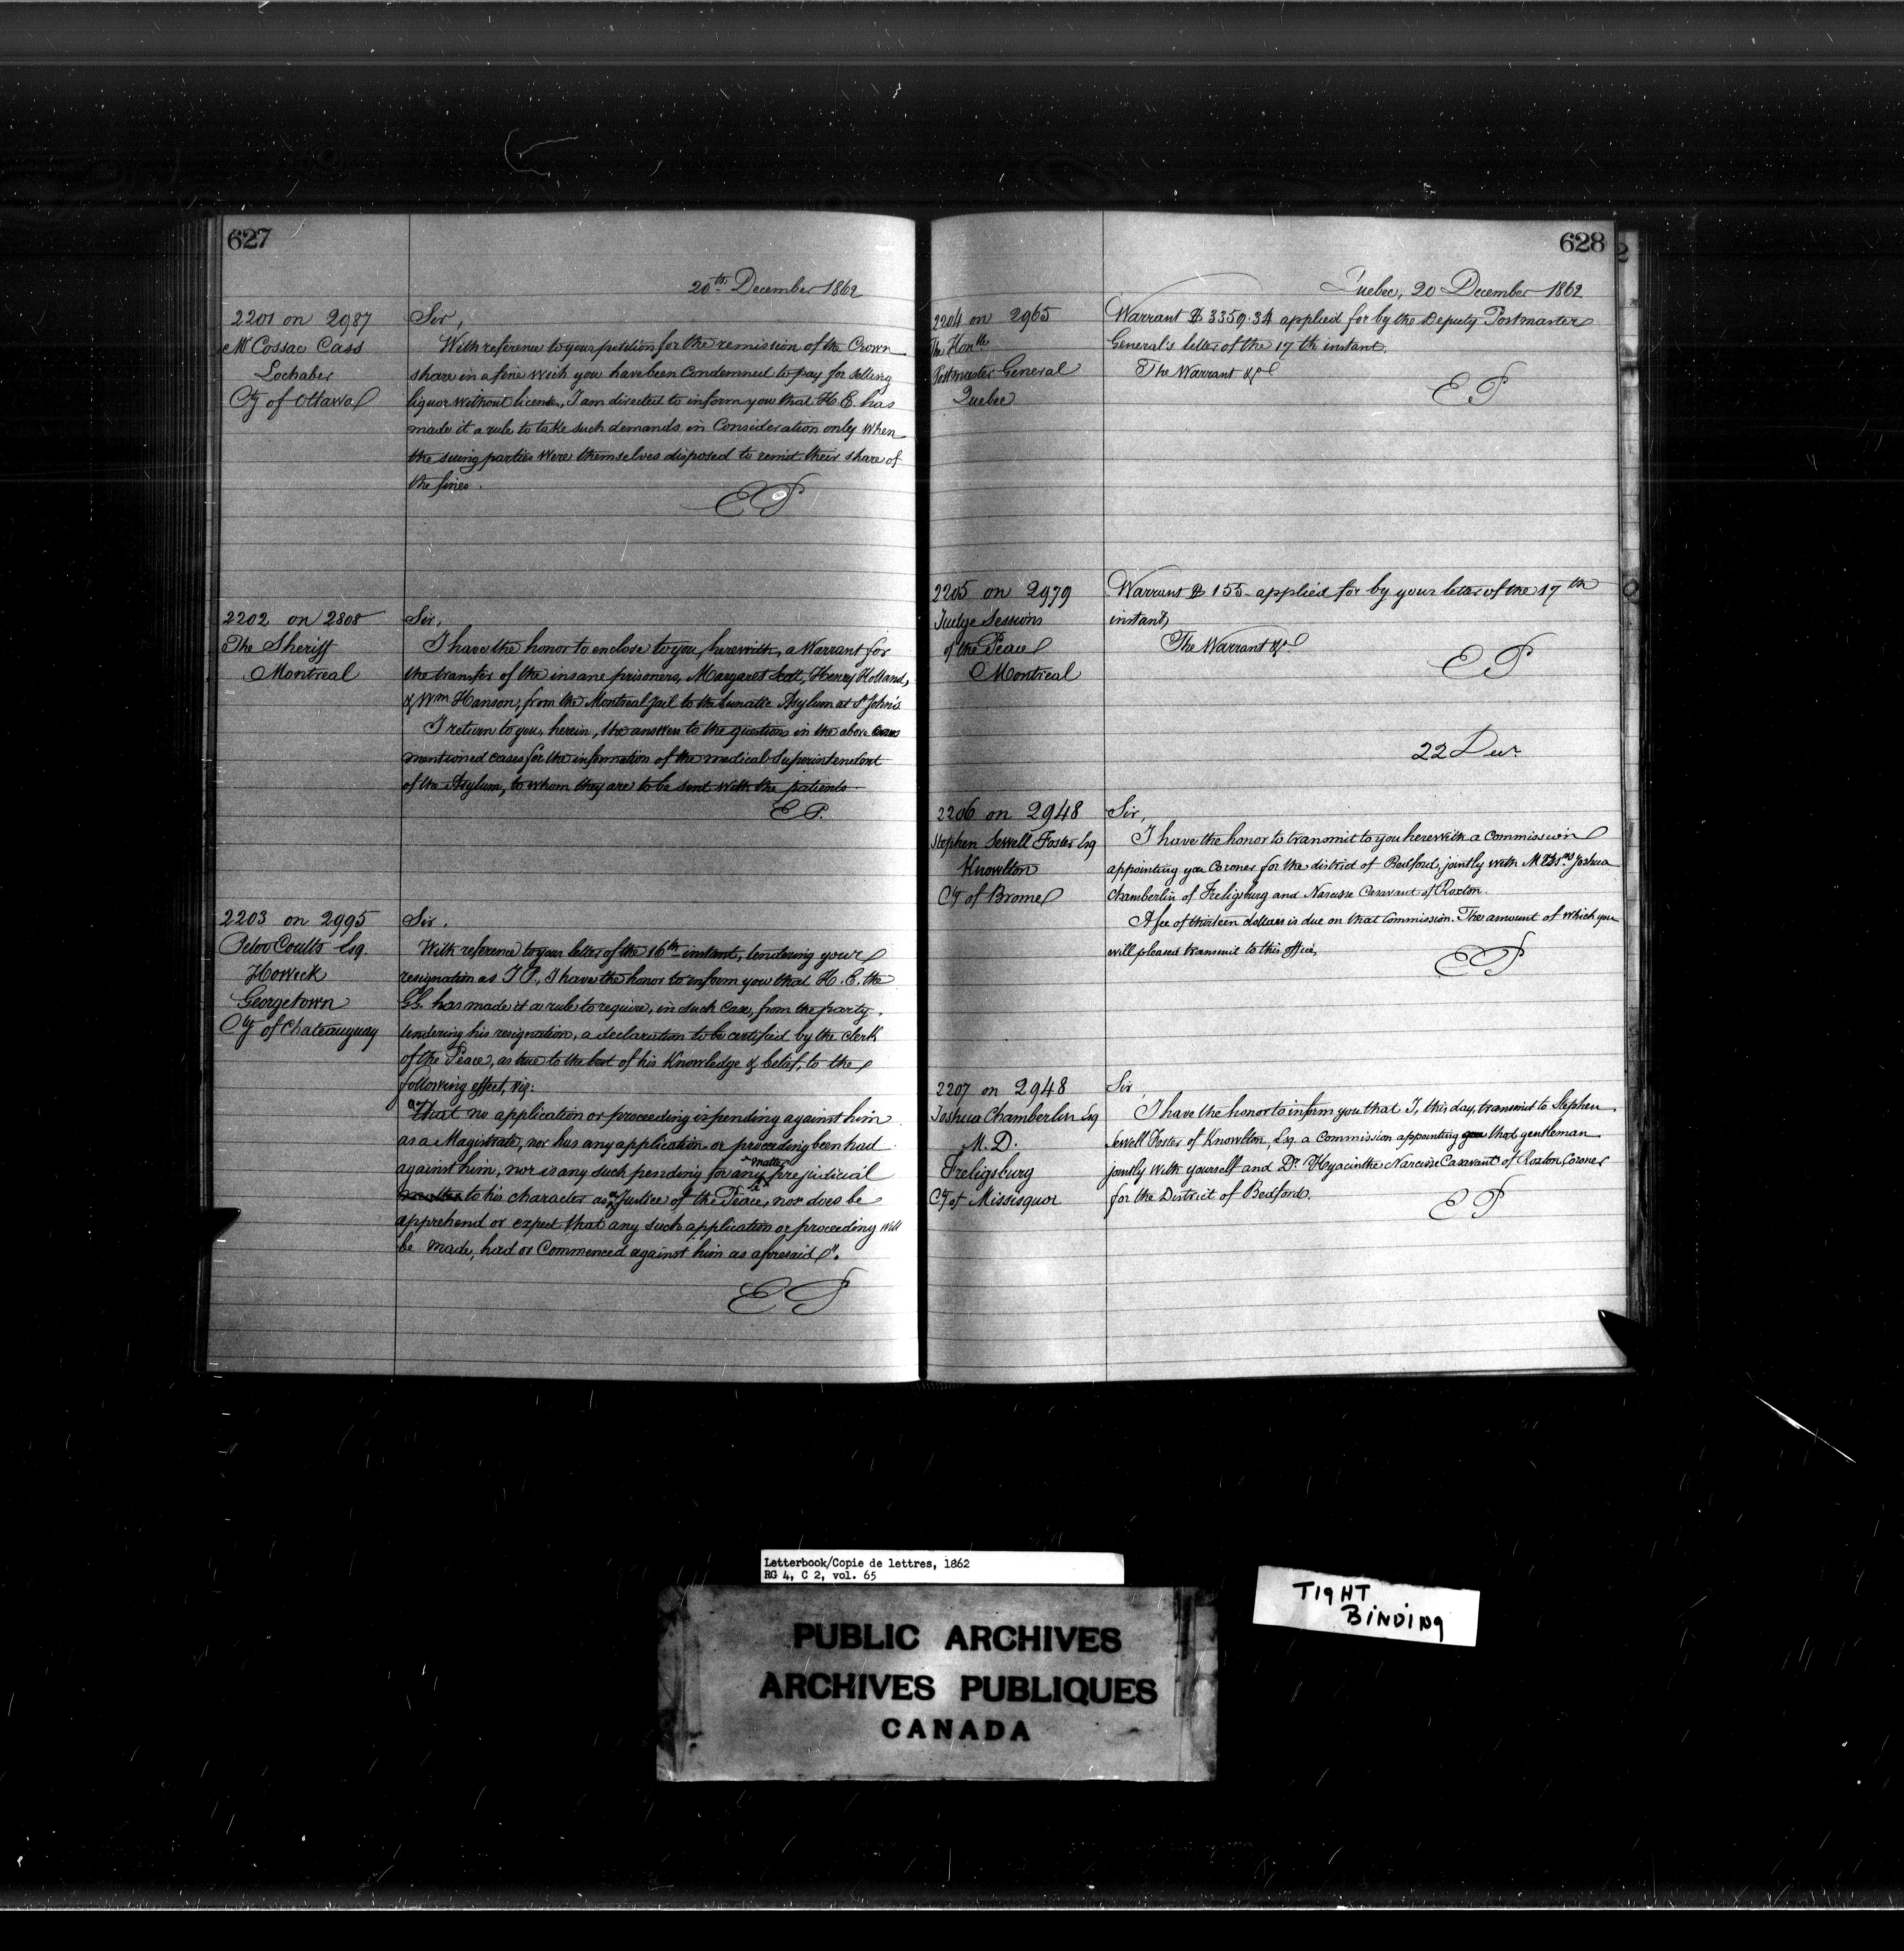 627
20th December 1862
2201 on 2987
Mr Cossac Cass
Lochaber
Cty of Ottawa
Sir,
With reference to your petition for the remission of the Crown
share in a fine wich you have been Condemned to pay for selling
liquor without license, I am directed to inform you that H. E. has
made it a rule to take such demands in Consideration only when
the suing parties were themselves disposed to remit their share of
the fines.
EP
2202 on 2808
The Sheriff
Montreal
Sir,
I have the honor to enclose to you, herewith, a Warrant for
the transfer of the insane prisoners, Margaret Scott, Henry Holland,
& Wm Hanson, from the Montreal Jail to the Lunatic Asylum at St John's
I return to you, herein, the answers to the questions in the above
mentioned cases for the information of the medical Superintendent
of the Asylum, to whom they are to be sent with the patients
EP.
2203 on 2995
Coults Esq.
Howick
Georgetown
Cty of Chateauguay
Sir.
With reference to your letter of the 16th instant, tendering your
resignation as J P., I have the honor to inform you that H. E. the
GG. has made it a rule to require, in such Case, from the party
tendering his resignation, a declaration to be certified by the Clerk
of the Peace, as true to the best of his Knowledge & belief, to the
following effect, viz:
"That no application or proceeding is pending against him
as a Magistrate, nor has any application or proceeding been had
against him, nor is any such pending for any matter prejudicial
matter to his character as a Justice of the Peace, nor does he
apprehend or expect that any such application or proceeding will
be made, had or Commenced against him as aforesaid".
EP
628
Quebec, 20 December 1862
2204 on 2965
The Honble
Postmaster General
Quebec
Warrant $ 3359.34 applied for by the Deputy Postmaster
General's letter of the 17th instant.
The Warrant &c
EP
2205 on 2979
Judge Sessions
of the Peace
Montreal
Warrant $ 155- applied for by your letter of the 17th
instant,
The Warrant &c
EP
22 Decr
2206 on 2948
Stephen Sewell Foster Esq
Knowlton
Cy of Brome
Sir,
I have the honor to transmit to you herewith a Commission
appointing you Coroner for the district of Bedford, jointly with Joshua
Chamberlin of Freligsburg and Narcisse Casavant of Roxton.
A fee of thirteen dollars is due on that Commission. The amount of which you
will please transmit to this office,
EP
2207 on 2948
Joshua Chamberlin Esq
M.D.
Freligsburg
Cy of Missisquoi
Sir,
I have the honor to inform you that I, this day, transmit to Stephen
Sewell Foster of Knowlton, Esq. a Commission appointing that gentleman
jointly with yourself and Dr Hyacinthe Narcisse Casavant of Roxton, Coroner
for the District of Bedford.
EP
Letterbook/Copie de lettres, 1862
RG 4, C 2, vol. 65
PUBLIC ARCHIVES
ARCHIVES PUBLIQUES
CANADA
TIGHT
BINDING